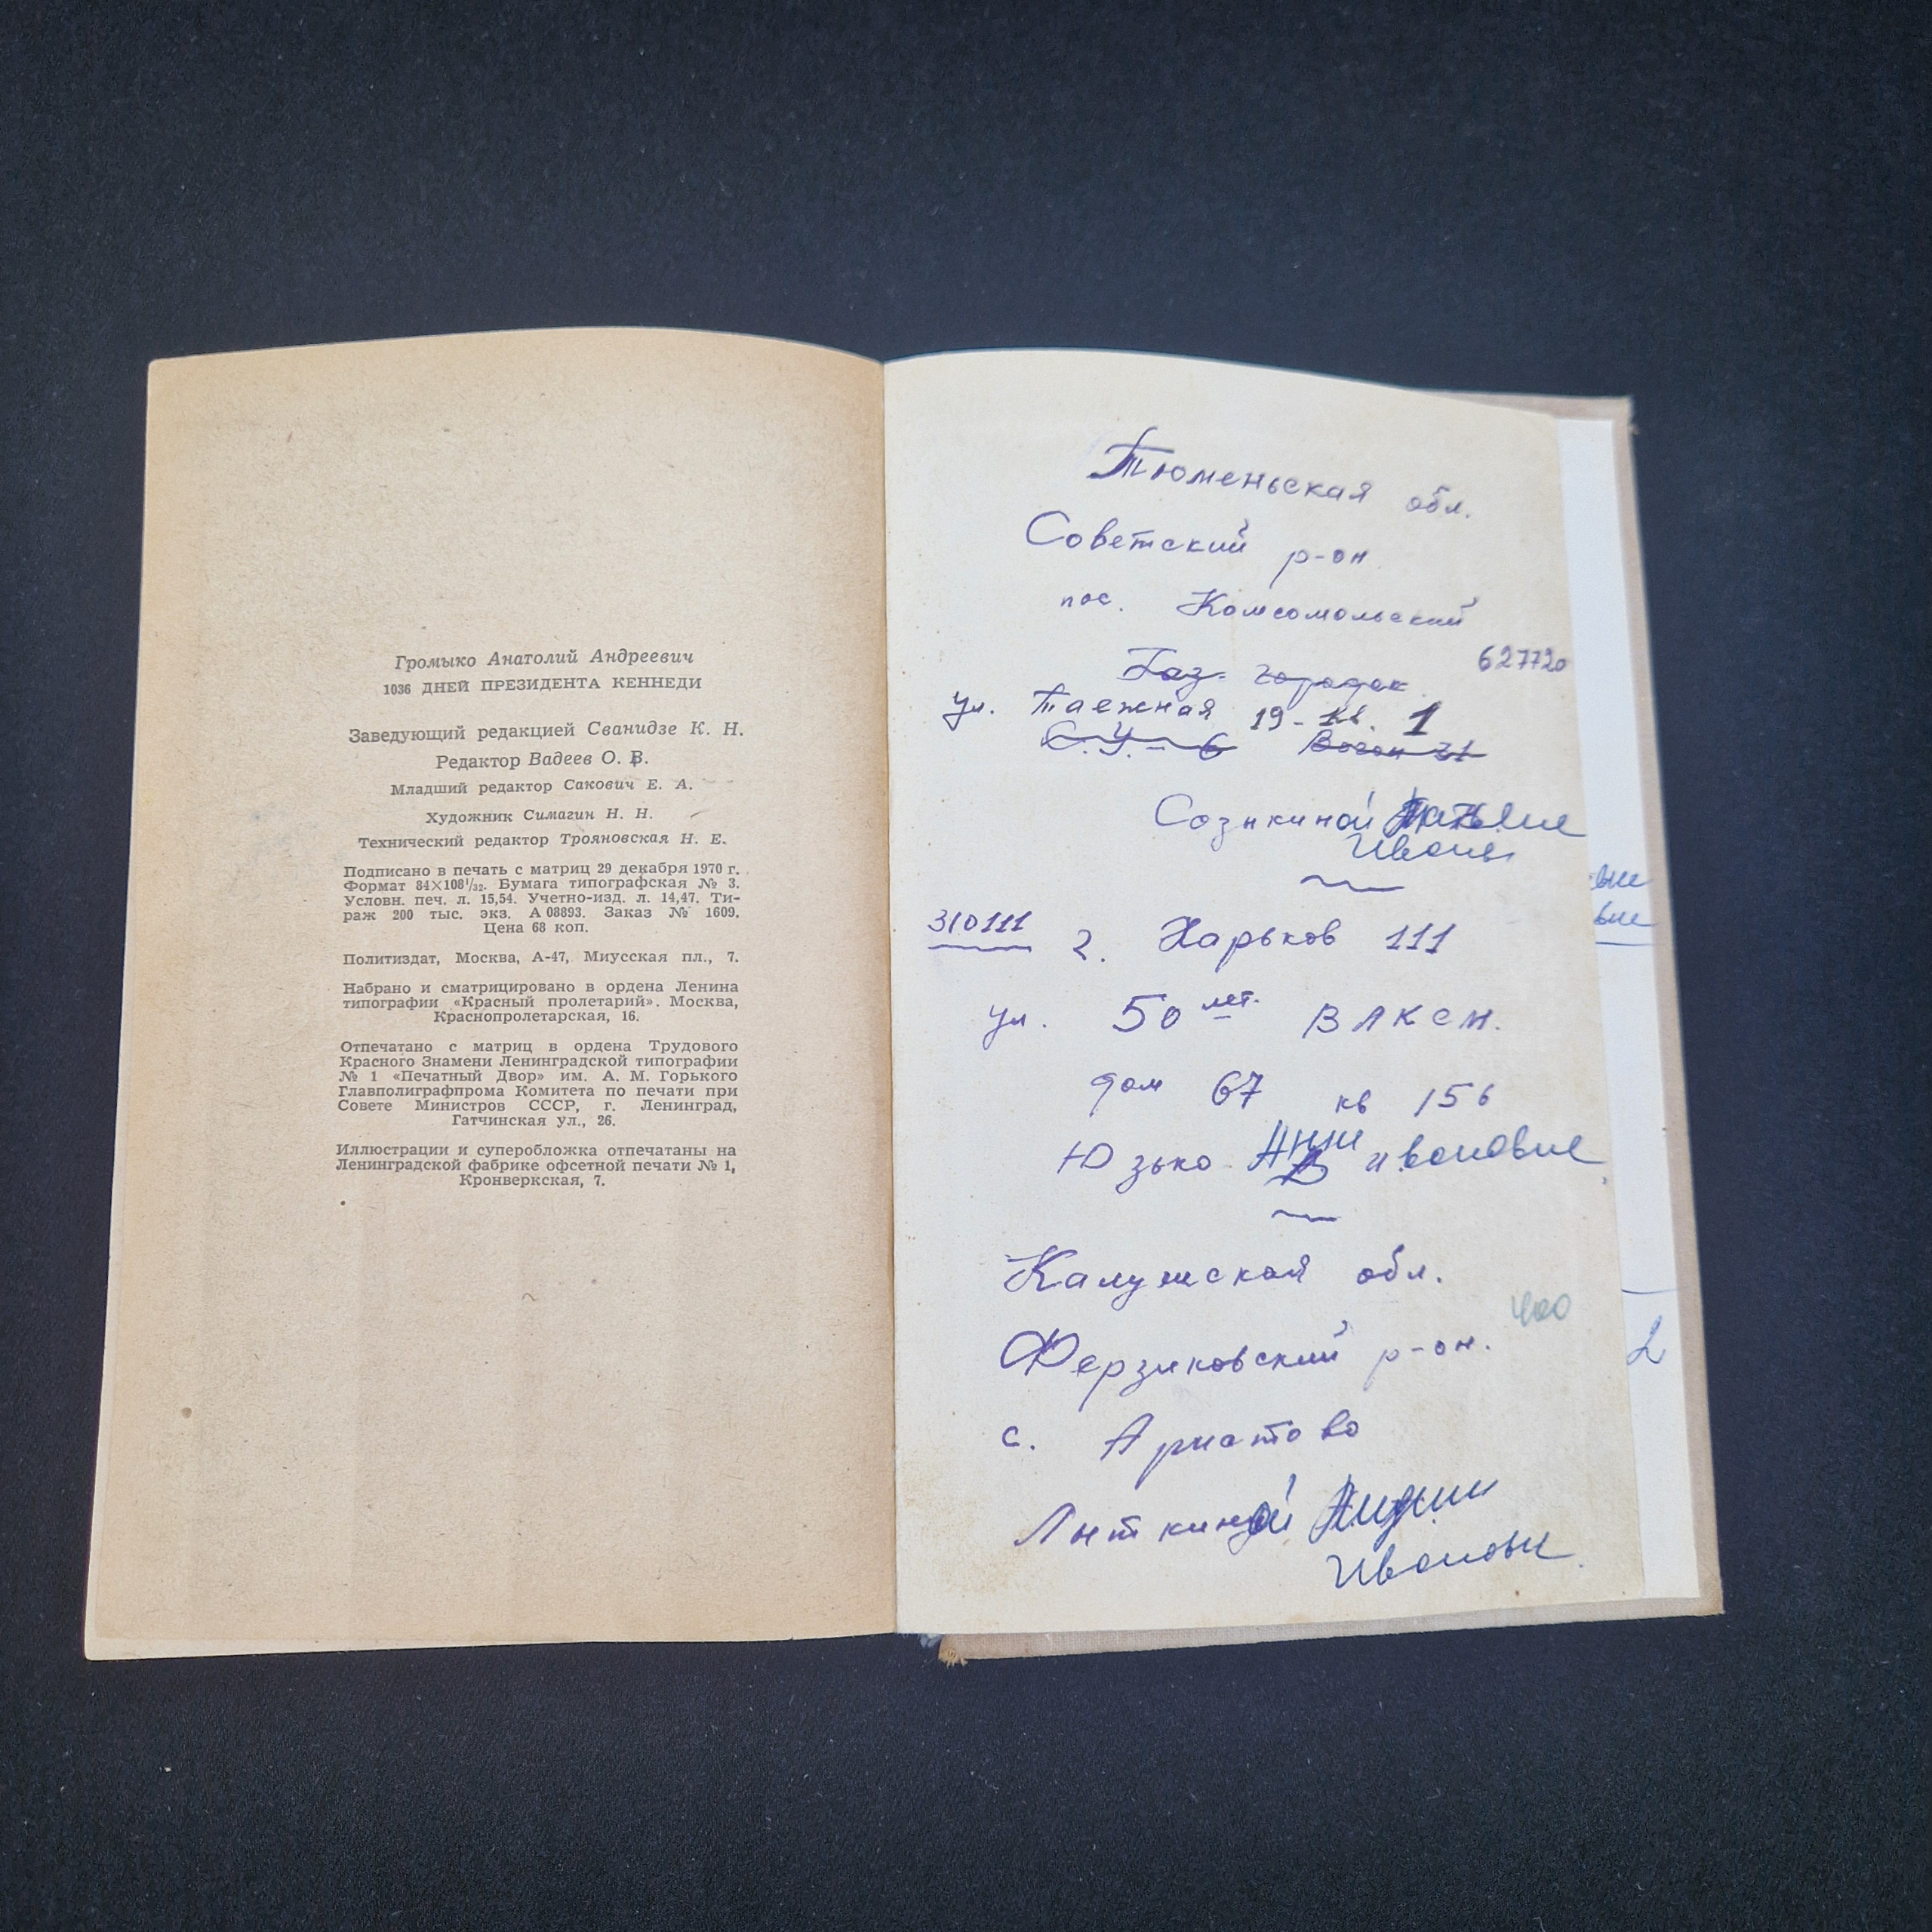 Громыко Анатолий Андреевич
1036 ДНЕЙ ПРЕЗИДЕНТА КЕННЕДИ
Заведующий редакцией Сванидзе К. Н.
Редактор Вадеев О. В.
Младший редактор Сакович Е. А.
Художник Симагин Н. Н.
Технический редактор Трояновская Н. Е.
Подписано в печать с матриц 29 декабря 1970 г.
Формат 84×108¹/₃₂. Бумага типографская № 3.
Условн. печ. л. 15,54. Учетно-изд. л. 14,47. Ти-
раж 200 тыс. экз. А 08893. Заказ № 1609.
Цена 68 коп.
Политиздат, Москва, А-47, Миусская пл., 7.
Набрано и сматрицировано в ордена Ленина
типографии «Красный пролетарий». Москва,
Краснопролетарская, 16.
Отпечатано с матриц в ордена Трудового
Красного Знамени Ленинградской типографии
№ 1 «Печатный Двор» им. А. М. Горького
Главполиграфпрома Комитета по печати при
Совете Министров СССР, г. Ленинград,
Гатчинская ул., 26.
Иллюстрации и суперобложка отпечатаны на
Ленинградской фабрике офсетной печати № 1,
Кронверкская, 7.
Тюменьская обл.
Советский р-он
пос. Комсомольский
627720
Газ. городок
ул. Таежная 19-кв. 1
С.У.-6 Вагон 31
Созыкиной Татьяне
Иван.
310111 г. Харьков 111
ул. 50 лет. ВЛКСМ.
дом 67 кв 156
Юзько Анне Ивановне
Калужская обл.
400
Ферзиковский р-он.
с. Аристово
Лыткиной Лидии
Ивановн
вне
вне
2